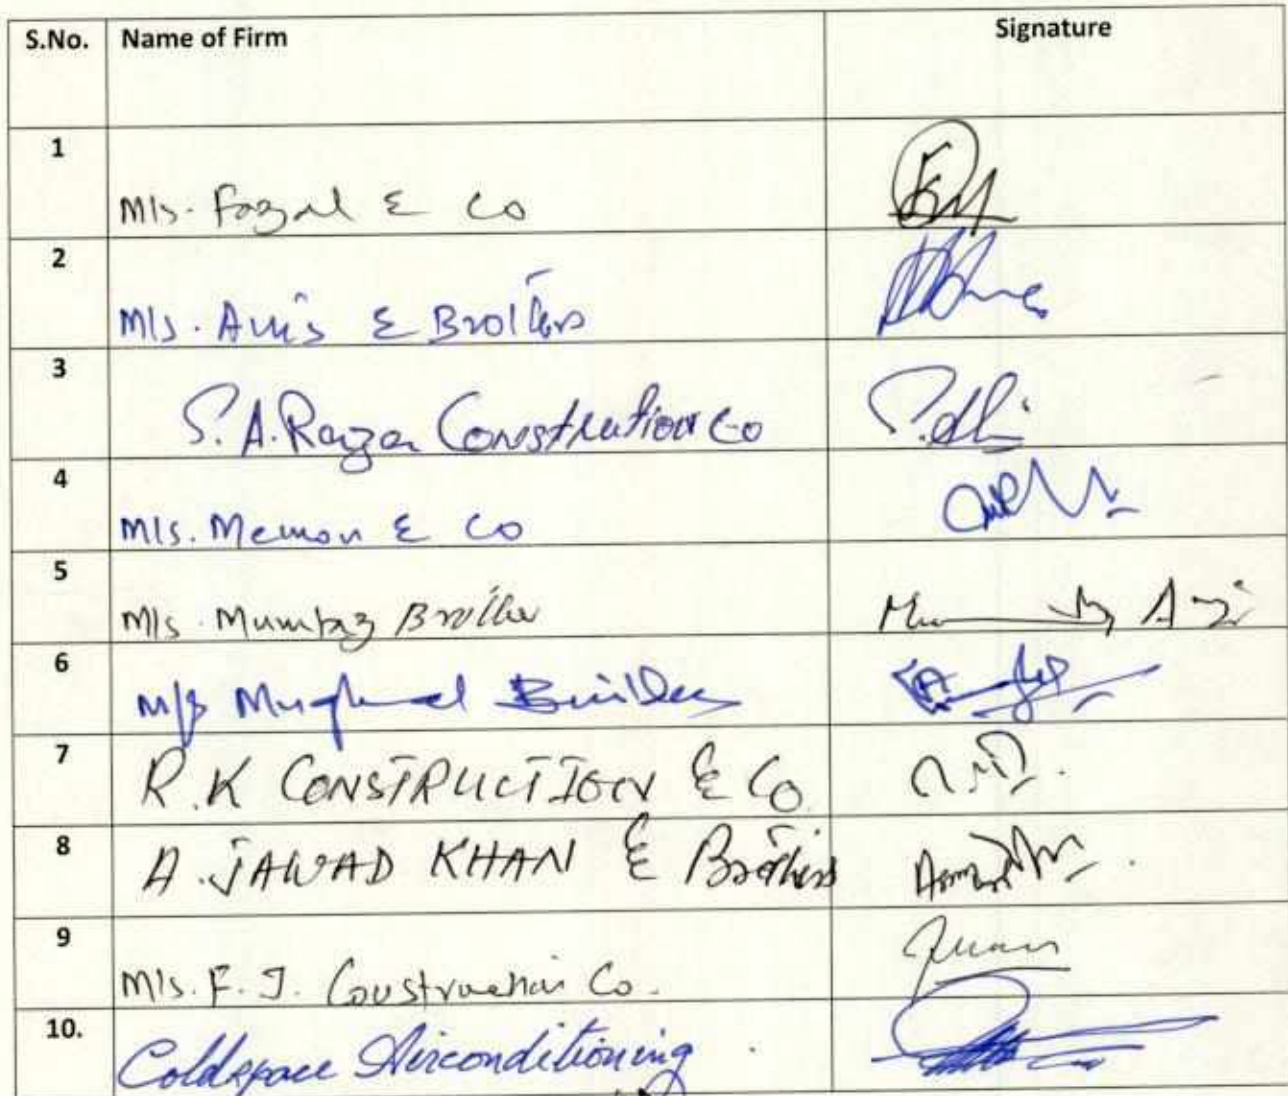 S.No. Name of Firm Signature
1
M/s. Fazal & Co
2
M/s. Anis & Brothers
3
S. A. Razza Construction Co
4
M/s. Memon & Co
5
M/s. Mumtaz Brother
6
M/s Mughal Builders
7
R.K CONSTRUCTION & Co.
8
A. JAWAD KHAN & Brothers
9
M/s. F. J. Construction Co.
10.
Coldspace Airconditioning